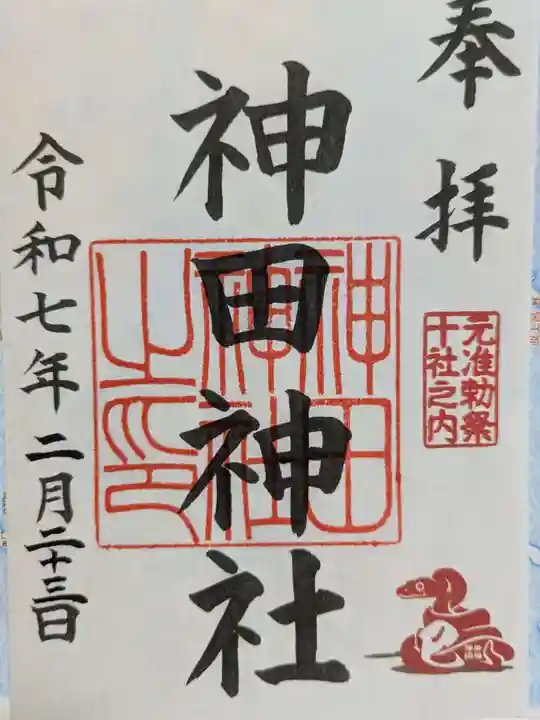 奉拝
元准勅祭
十社之内
神田神社
神田
神社
之印
令和七年二月二十三日